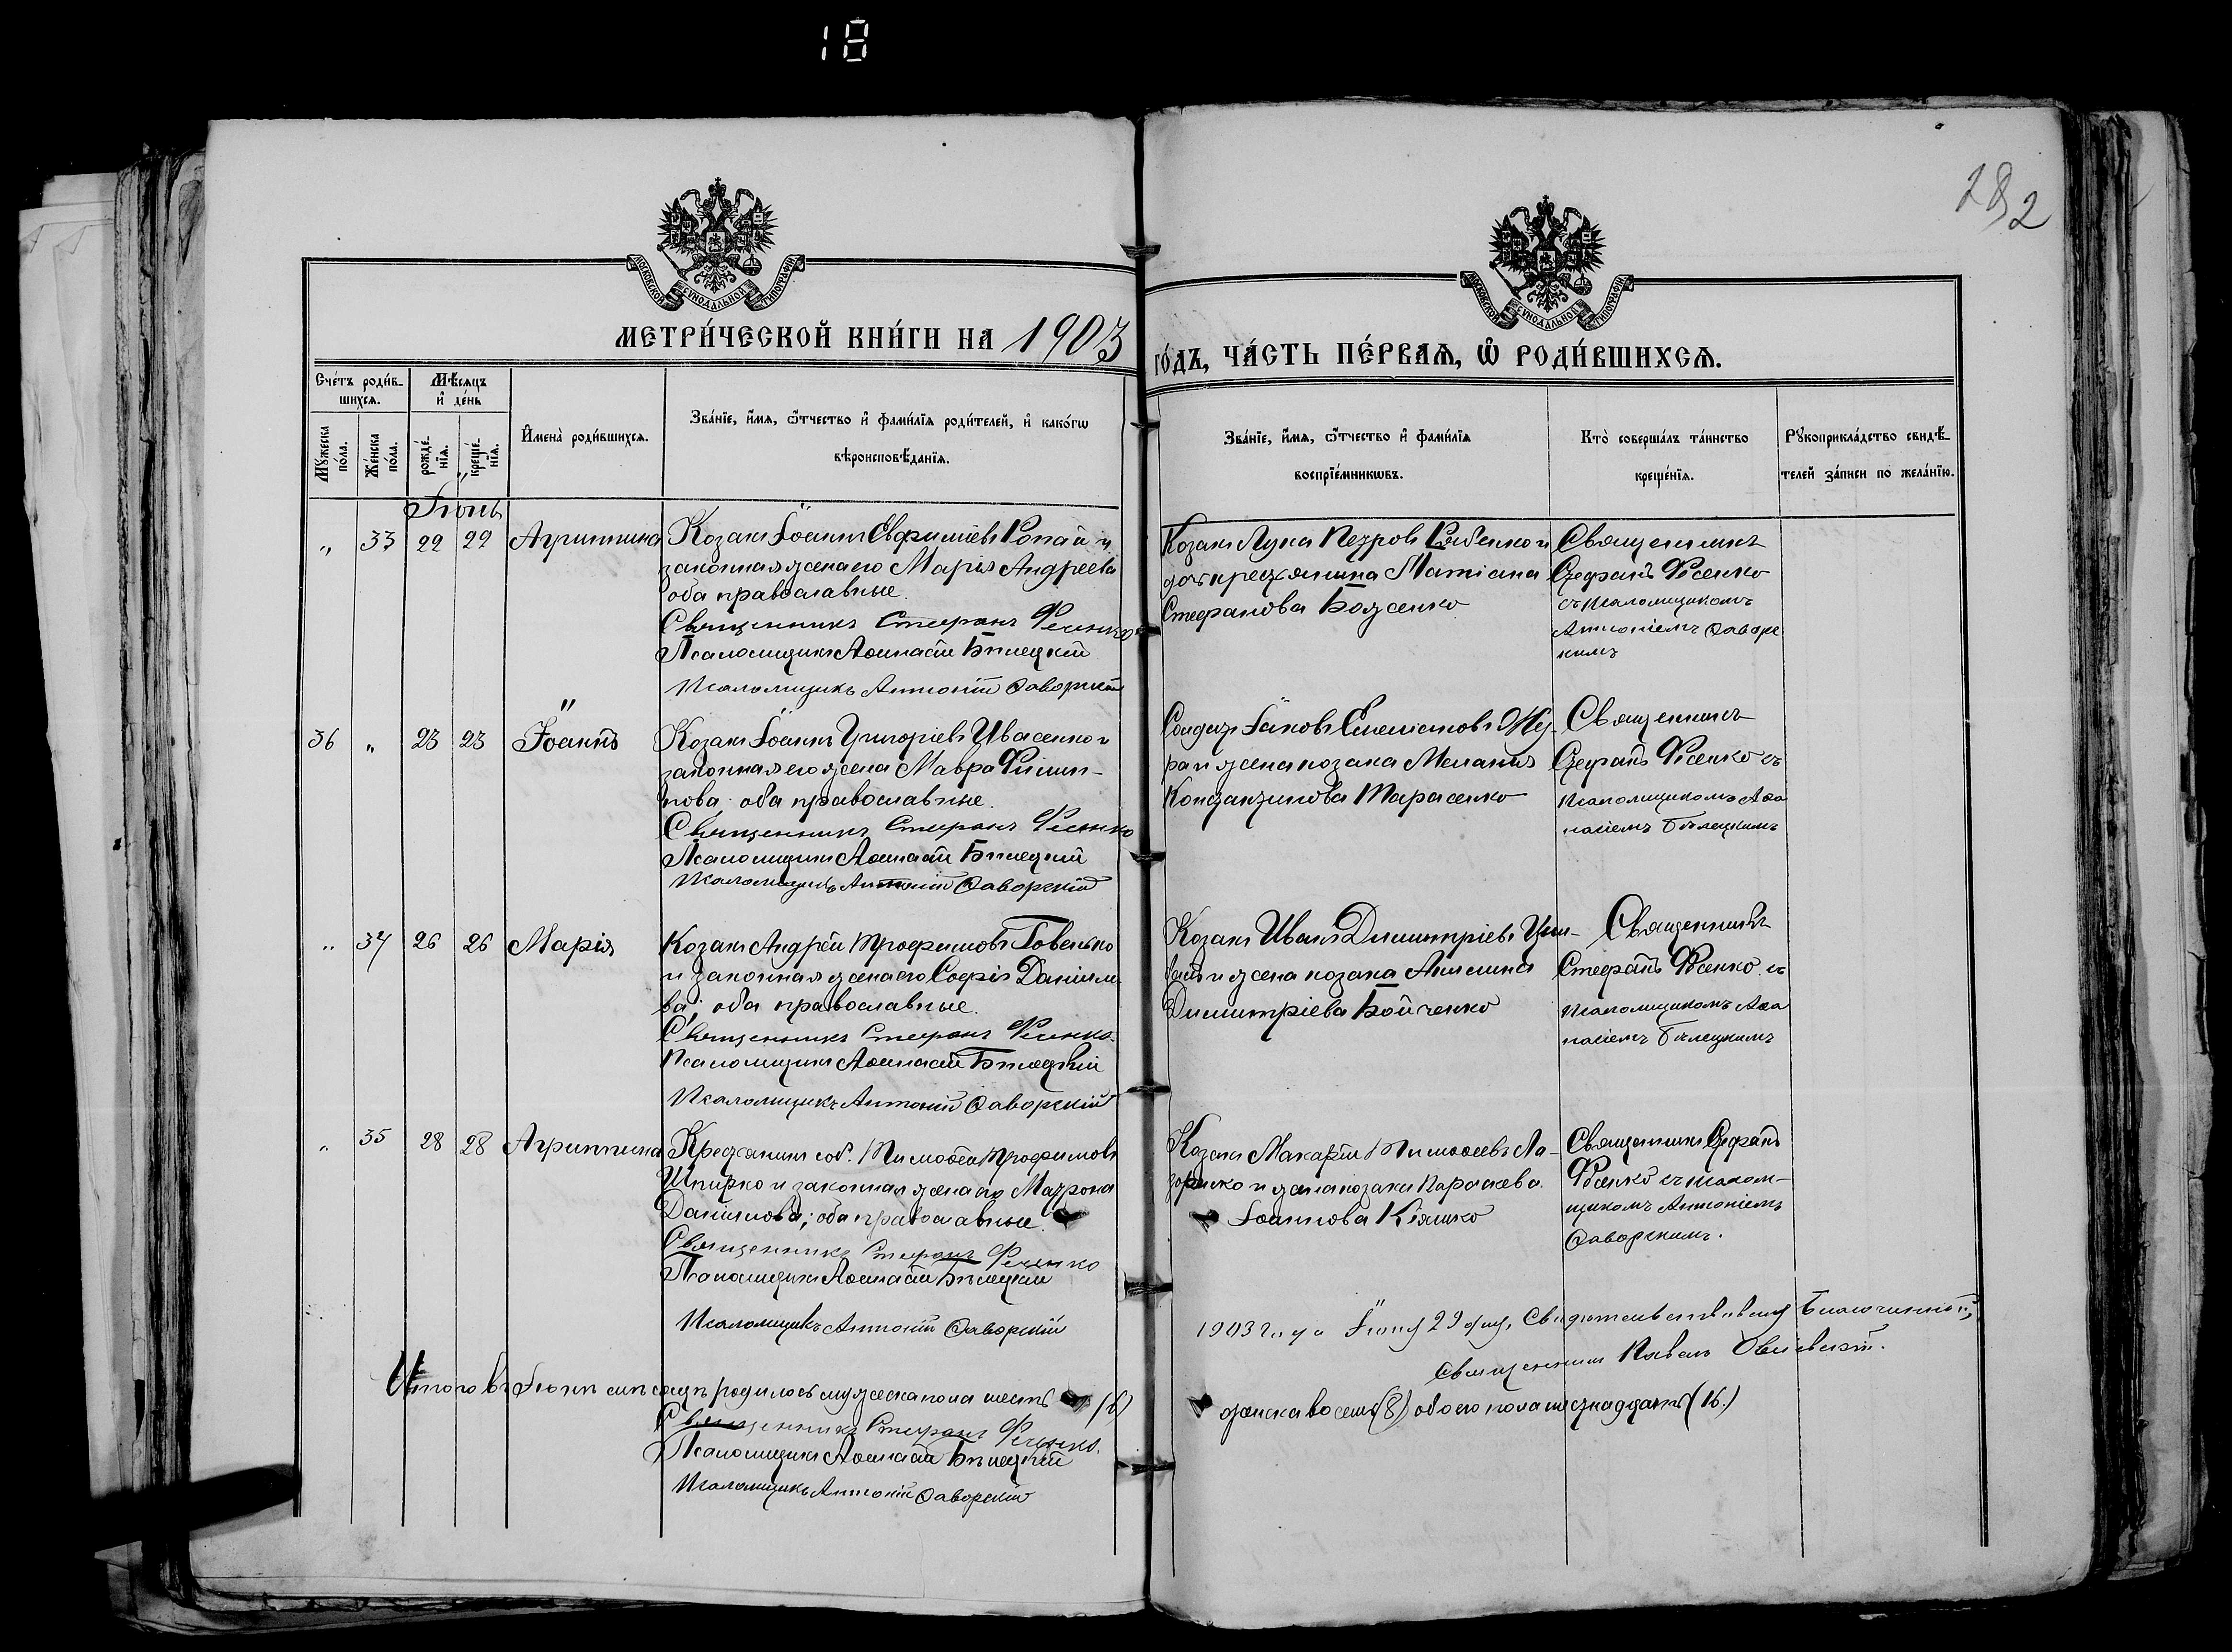 18
282
МОСКОВСКОЙ СѴНОДАЛЬНОЙ ТИПОГРАФІИ
МОСКОВСКОЙ СѴНОДАЛЬНОЙ ТИПОГРАФІИ
МЕТРИ́ЧЕСКОЙ КНИ́ГИ НА 1903
ГО́ДЪ, ЧА́СТЬ ПЕ́РВАЯ, Ѡ РОДИ́ВШИХСЯ.
Сче́тъ роди́в-
шихся.
Мѣ́сяцъ
и де́нь
Му́жеска
по́ла.
Же́нска
по́ла.
рожде́-
нїя.
креще́-
нїя.
Имена̀ роди́вшихся.
Зва́нїе, и́мя, ѻ́тчество и фами́лїя роди́телей, и како́гѡ
вѣроисповѣ́данїя.
Зва́нїе, и́мя, ѻ́тчество и фами́лїя
воспрїе́мникѡвъ.
Кто̀ соверша́лъ та́инство
креще́нїя.
Рукоприкла́дство свидѣ́-
телей за́писи по жела́нїю.
Іюнь
" 33 22 22 Агриппина
Козакъ Іоаннъ Евфиміевъ Ропай и
законная жена его Марія Андреева
оба православные.
Священникъ Стефанъ Фесенко
Псаломщикъ Аѳанасій Бѣлецкій
Псаломщикъ Антоній Ѳаворскій
Козакъ Лука Петровъ Рябенко и
дочь крестьянина Татіана
Стефанова Боженко
Священникъ
Стефанъ Фесенко
съ псаломщикомъ
Антоніемъ Ѳаворс
кимъ
36 " 23 23 Іоаннъ
Козакъ Іоаннъ Григоріевъ Ивасенко и
законная его жена Мавра Филип-
пова; оба православные.
Священникъ Стефанъ Фесенко
Псаломщикъ Аѳанасій Бѣлецкій
Псаломщикъ Антоній Ѳаворскій
Солдатъ Іаковъ Емеліановъ
ра и жена козака Меланія
Константинова Тарасенко
Священникъ
Стефанъ Фесенко съ
псаломщикомъ Аѳа
насіемъ Бѣлецкимъ
" 34 26 26 Марія
Козакъ Андрей Трофимовъ Говенько
и законная жена его Софія Даніило
ва; оба православные.
Священникъ Стефанъ Фесенко
Псаломщикъ Аѳанасій Бѣлецкій
Псаломщикъ Антоній Ѳаворскій
Козакъ Иванъ Димитріевъ
и жена козака Акилина
Димитріева Бойченко
Священникъ
Стефанъ Фесенко съ
псаломщикомъ Аѳа
насіемъ Бѣлецкимъ
" 35 28 28 Агриппина
Крестьянинъ соб. Тимоѳей Трофимовъ
Шпирко и законная жена его Матрона
Даніилова; оба православные.
Священникъ Стефанъ Фесенко
Псаломщикъ Аѳанасій Бѣлецкій
Псаломщикъ Антоній Ѳаворскій
Козакъ Макарій Тимоѳеевъ Ла-
зоренко и жена козака Параскева
Іоаннова Кіяшко
Священникъ Стефанъ
Фесенко съ псалом-
щикомъ Антоніемъ
Ѳаворскимъ.
1903 года Іюня 29 дня, Свидѣтельствовалъ Благочинный,
Священникъ Павелъ
Итого въ Іюнѣ мѣсяцѣ родилось мужеска пола шесть
женска восемь (8) обоего пола шестнадцать (16.)
Священникъ Стефанъ Фесенко.
Псаломщикъ Аѳанасій Бѣлецкій
Псаломщикъ Антоній Ѳаворскій